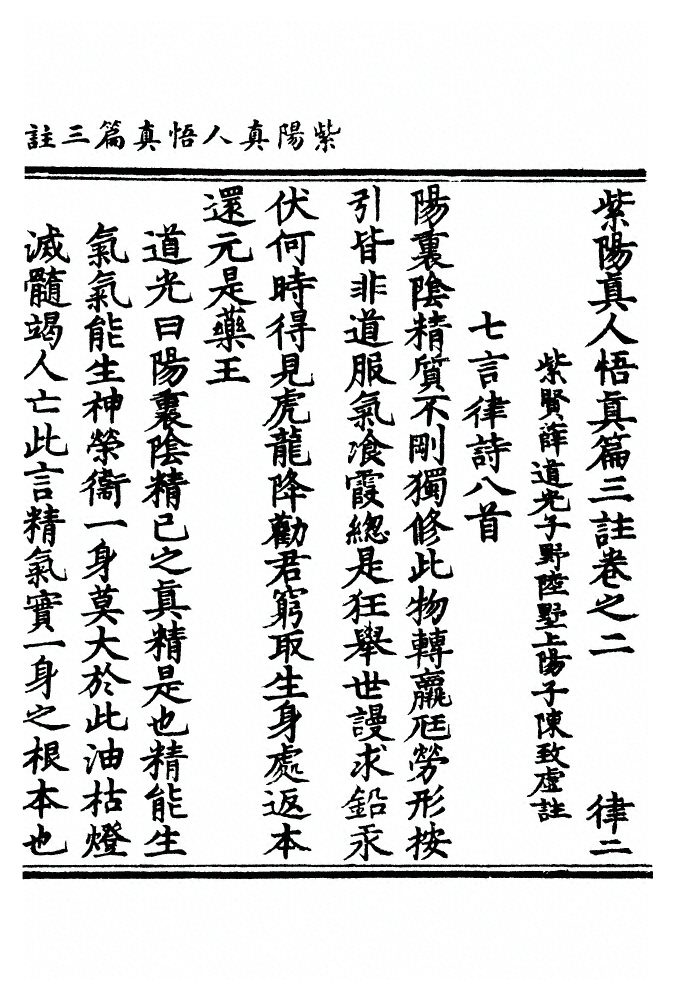 紫陽真人悟真篇三註
紫陽真人悟真篇三註卷之二　律二
紫賢薛道光子野陸墅上陽子陳致虛註
七言律詩八首
陽裏陰精質不剛獨修此物轉羸尫勞形按
引皆非道服氣飡霞總是狂舉世謾求鉛汞
伏何時得見虎龍降勸君窮取生身處返本
還元是藥王
道光曰陽裏陰精己之真精是也精能生
氣氣能生神榮衞一身莫大於此油枯燈
滅髓竭人亡此言精氣實一身之根本也